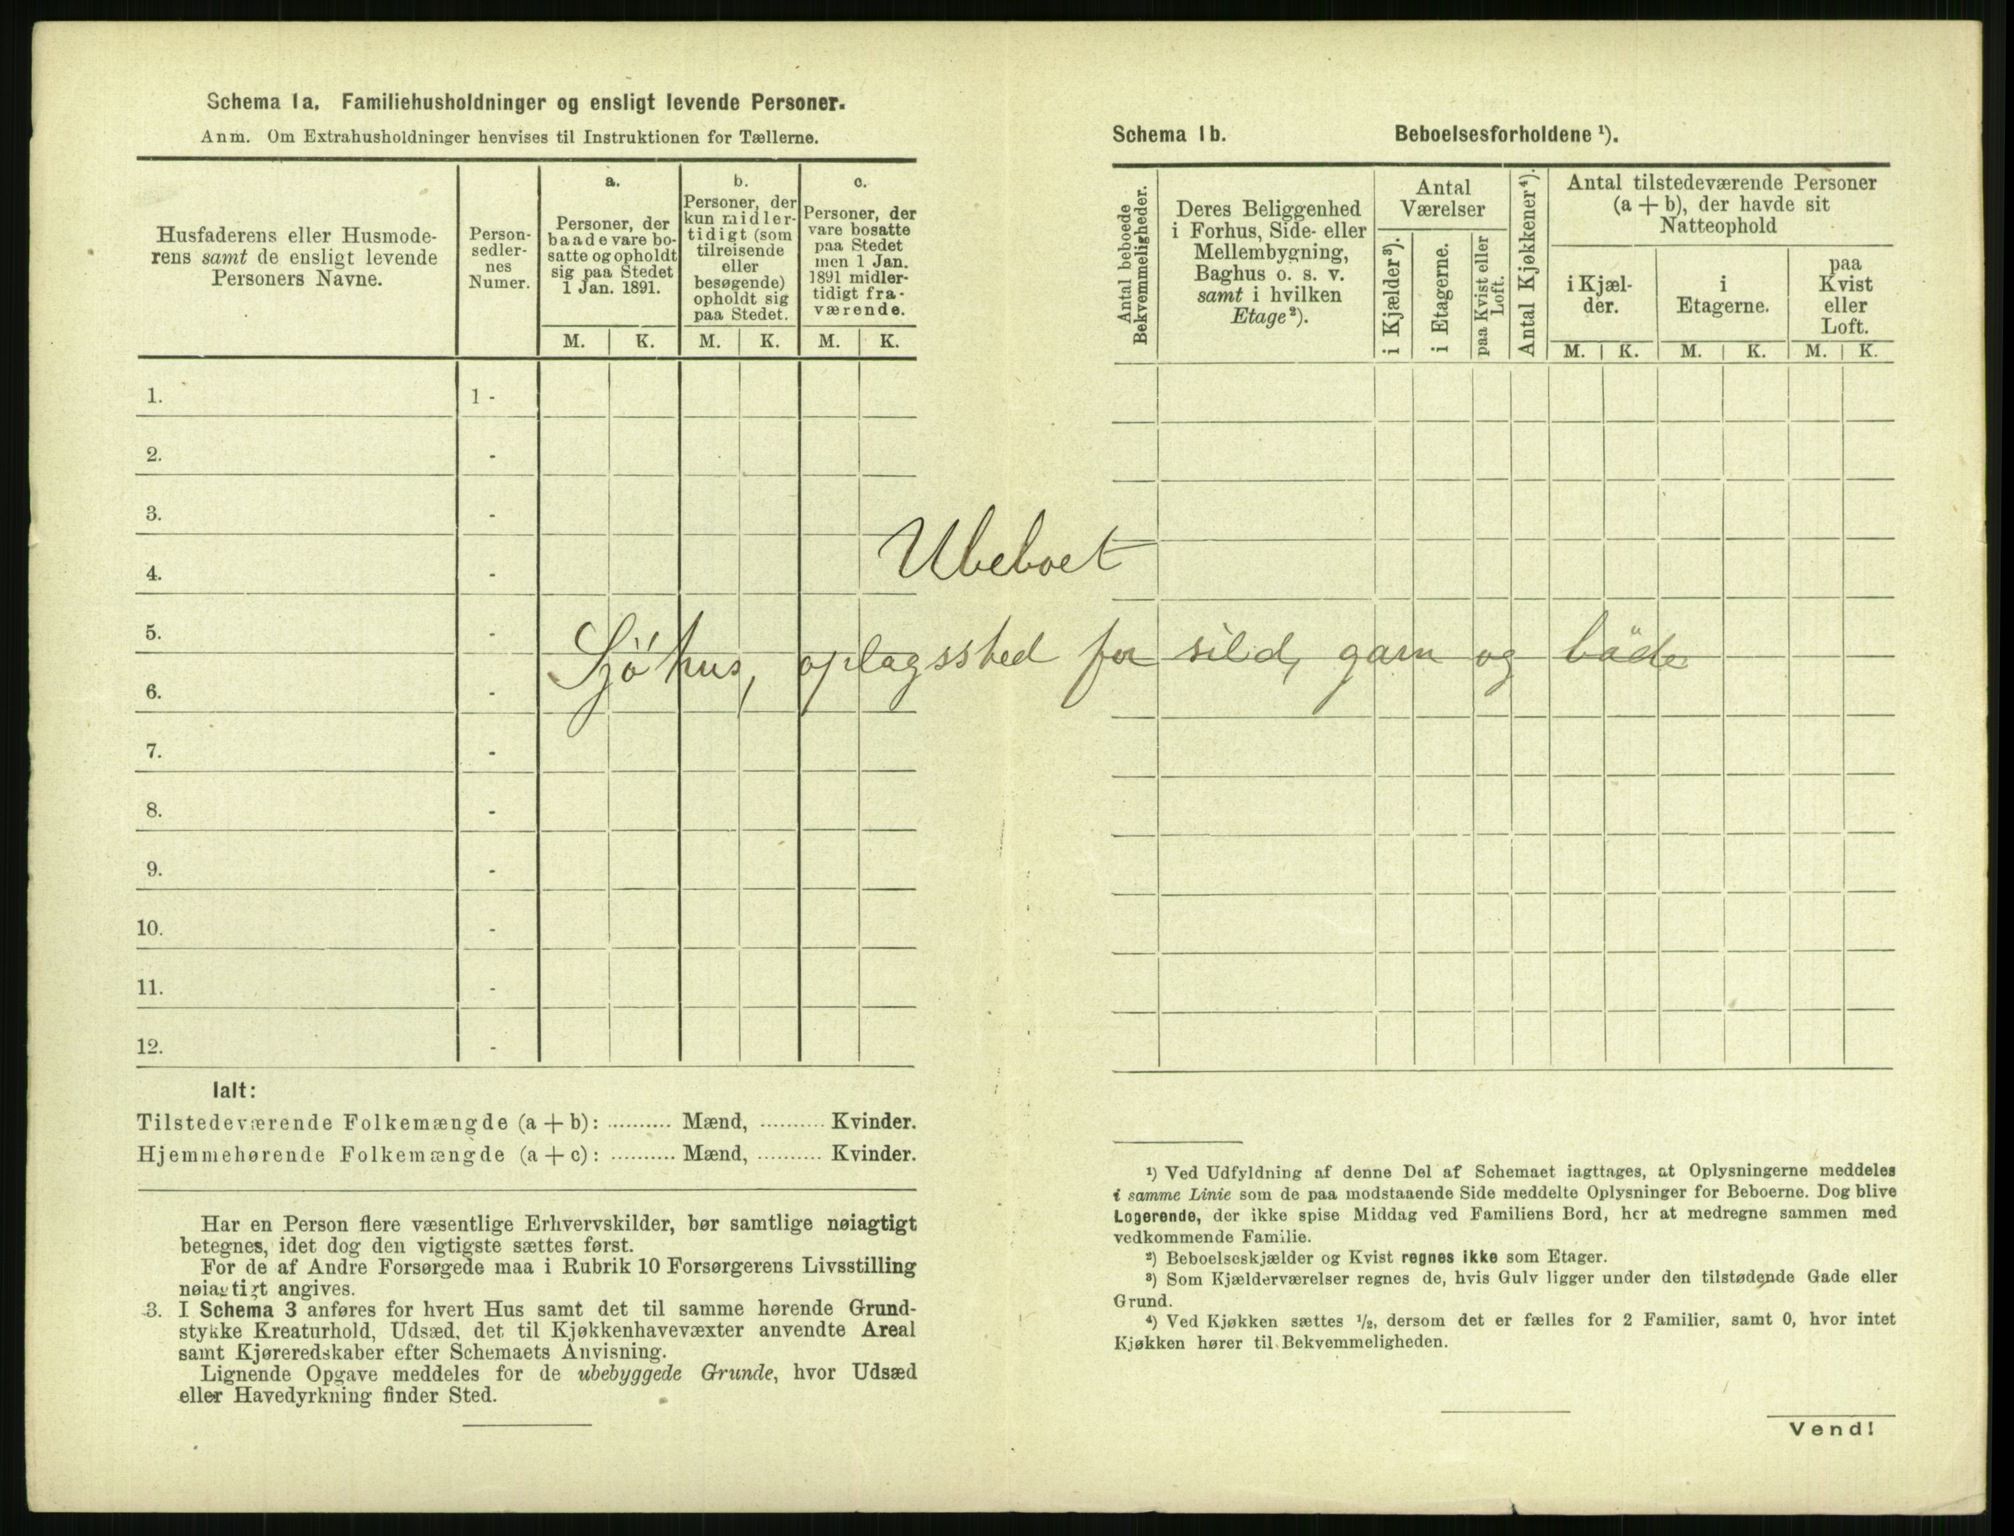 Schema 1a. Familiehusholdninger og ensligt levende Personer.
Anm. Om Extrahusholdninger henvises til Instruktionen for Tællerne.
Husfaderens eller Husmode-
rens samt de ensligt levende
Personers Navne.
Person-
sedler-
nes
Numer.
a.
Personer, der
baade vare bo-
satte og opholdt
sig paa Stedet
1 Jan. 1891.
b.
Personer, der
kun midler-
tidigt (som
tilreisende
eller
besøgende)
opholdt sig
paa Stedet.
c.
Personer, der
vare bosatte
paa Stedet
men 1 Jan.
1891 midler-
tidigt fra-
værende.
M. K. M. K. M. K.
1. 1 -
2. -
3. -
4. -
5. -
6. -
7. -
8. -
9. -
10. -
11. -
12. -
Ialt:
Tilstedeværende Folkemængde (a + b): .......... Mænd, .......... Kvinder.
Hjemmehørende Folkemængde (a + c): .......... Mænd, .......... Kvinder.
Har en Person flere væsentlige Erhvervskilder, bør samtlige nøiagtigt
betegnes, idet dog den vigtigste sættes først.
For de af Andre Forsørgede maa i Rubrik 10 Forsørgerens Livsstilling
nøiagtigt angives.
3. I Schema 3 anføres for hvert Hus samt det til samme hørende Grund-
stykke Kreaturhold, Udsæd, det til Kjøkkenhavevæxter anvendte Areal
samt Kjøreredskaber efter Schemaets Anvisning.
Lignende Opgave meddeles for de ubebyggede Grunde, hvor Udsæd
eller Havedyrkning finder Sted.
Ubeboet
Sjöhus, oplagssted for sild, garn og både
Schema 1b. Beboelsesforholdene ¹).
Antal beboede
Bekvemmeligheder.
Deres Beliggenhed
i Forhus, Side- eller
Mellembygning,
Baghus o. s. v.
samt i hvilken
Etage²).
Antal
Værelser
i Kjælder³).
i Etagerne.
paa Kvist eller
Loft.
Antal Kjøkkener⁴).
Antal tilstedeværende Personer
(a + b), der havde sit
Natteophold
i Kjæl-
der.
i
Etagerne.
paa
Kvist
eller
Loft.
M. K. M. K. M. K.
¹) Ved Udfyldning af denne Del af Schemaet iagttages, at Oplysningerne meddeles
i samme Linie som de paa modstaaende Side meddelte Oplysninger for Beboerne. Dog blive
Logerende, der ikke spise Middag ved Familiens Bord, her at medregne sammen med
vedkommende Familie.
²) Beboelseskjælder og Kvist regnes ikke som Etager.
³) Som Kjælderværelser regnes de, hvis Gulv ligger under den tilstødende Gade eller
Grund.
⁴) Ved Kjøkken sættes ½, dersom det er fælles for 2 Familier, samt 0, hvor intet
Kjøkken hører til Bekvemmeligheden.
Vend!